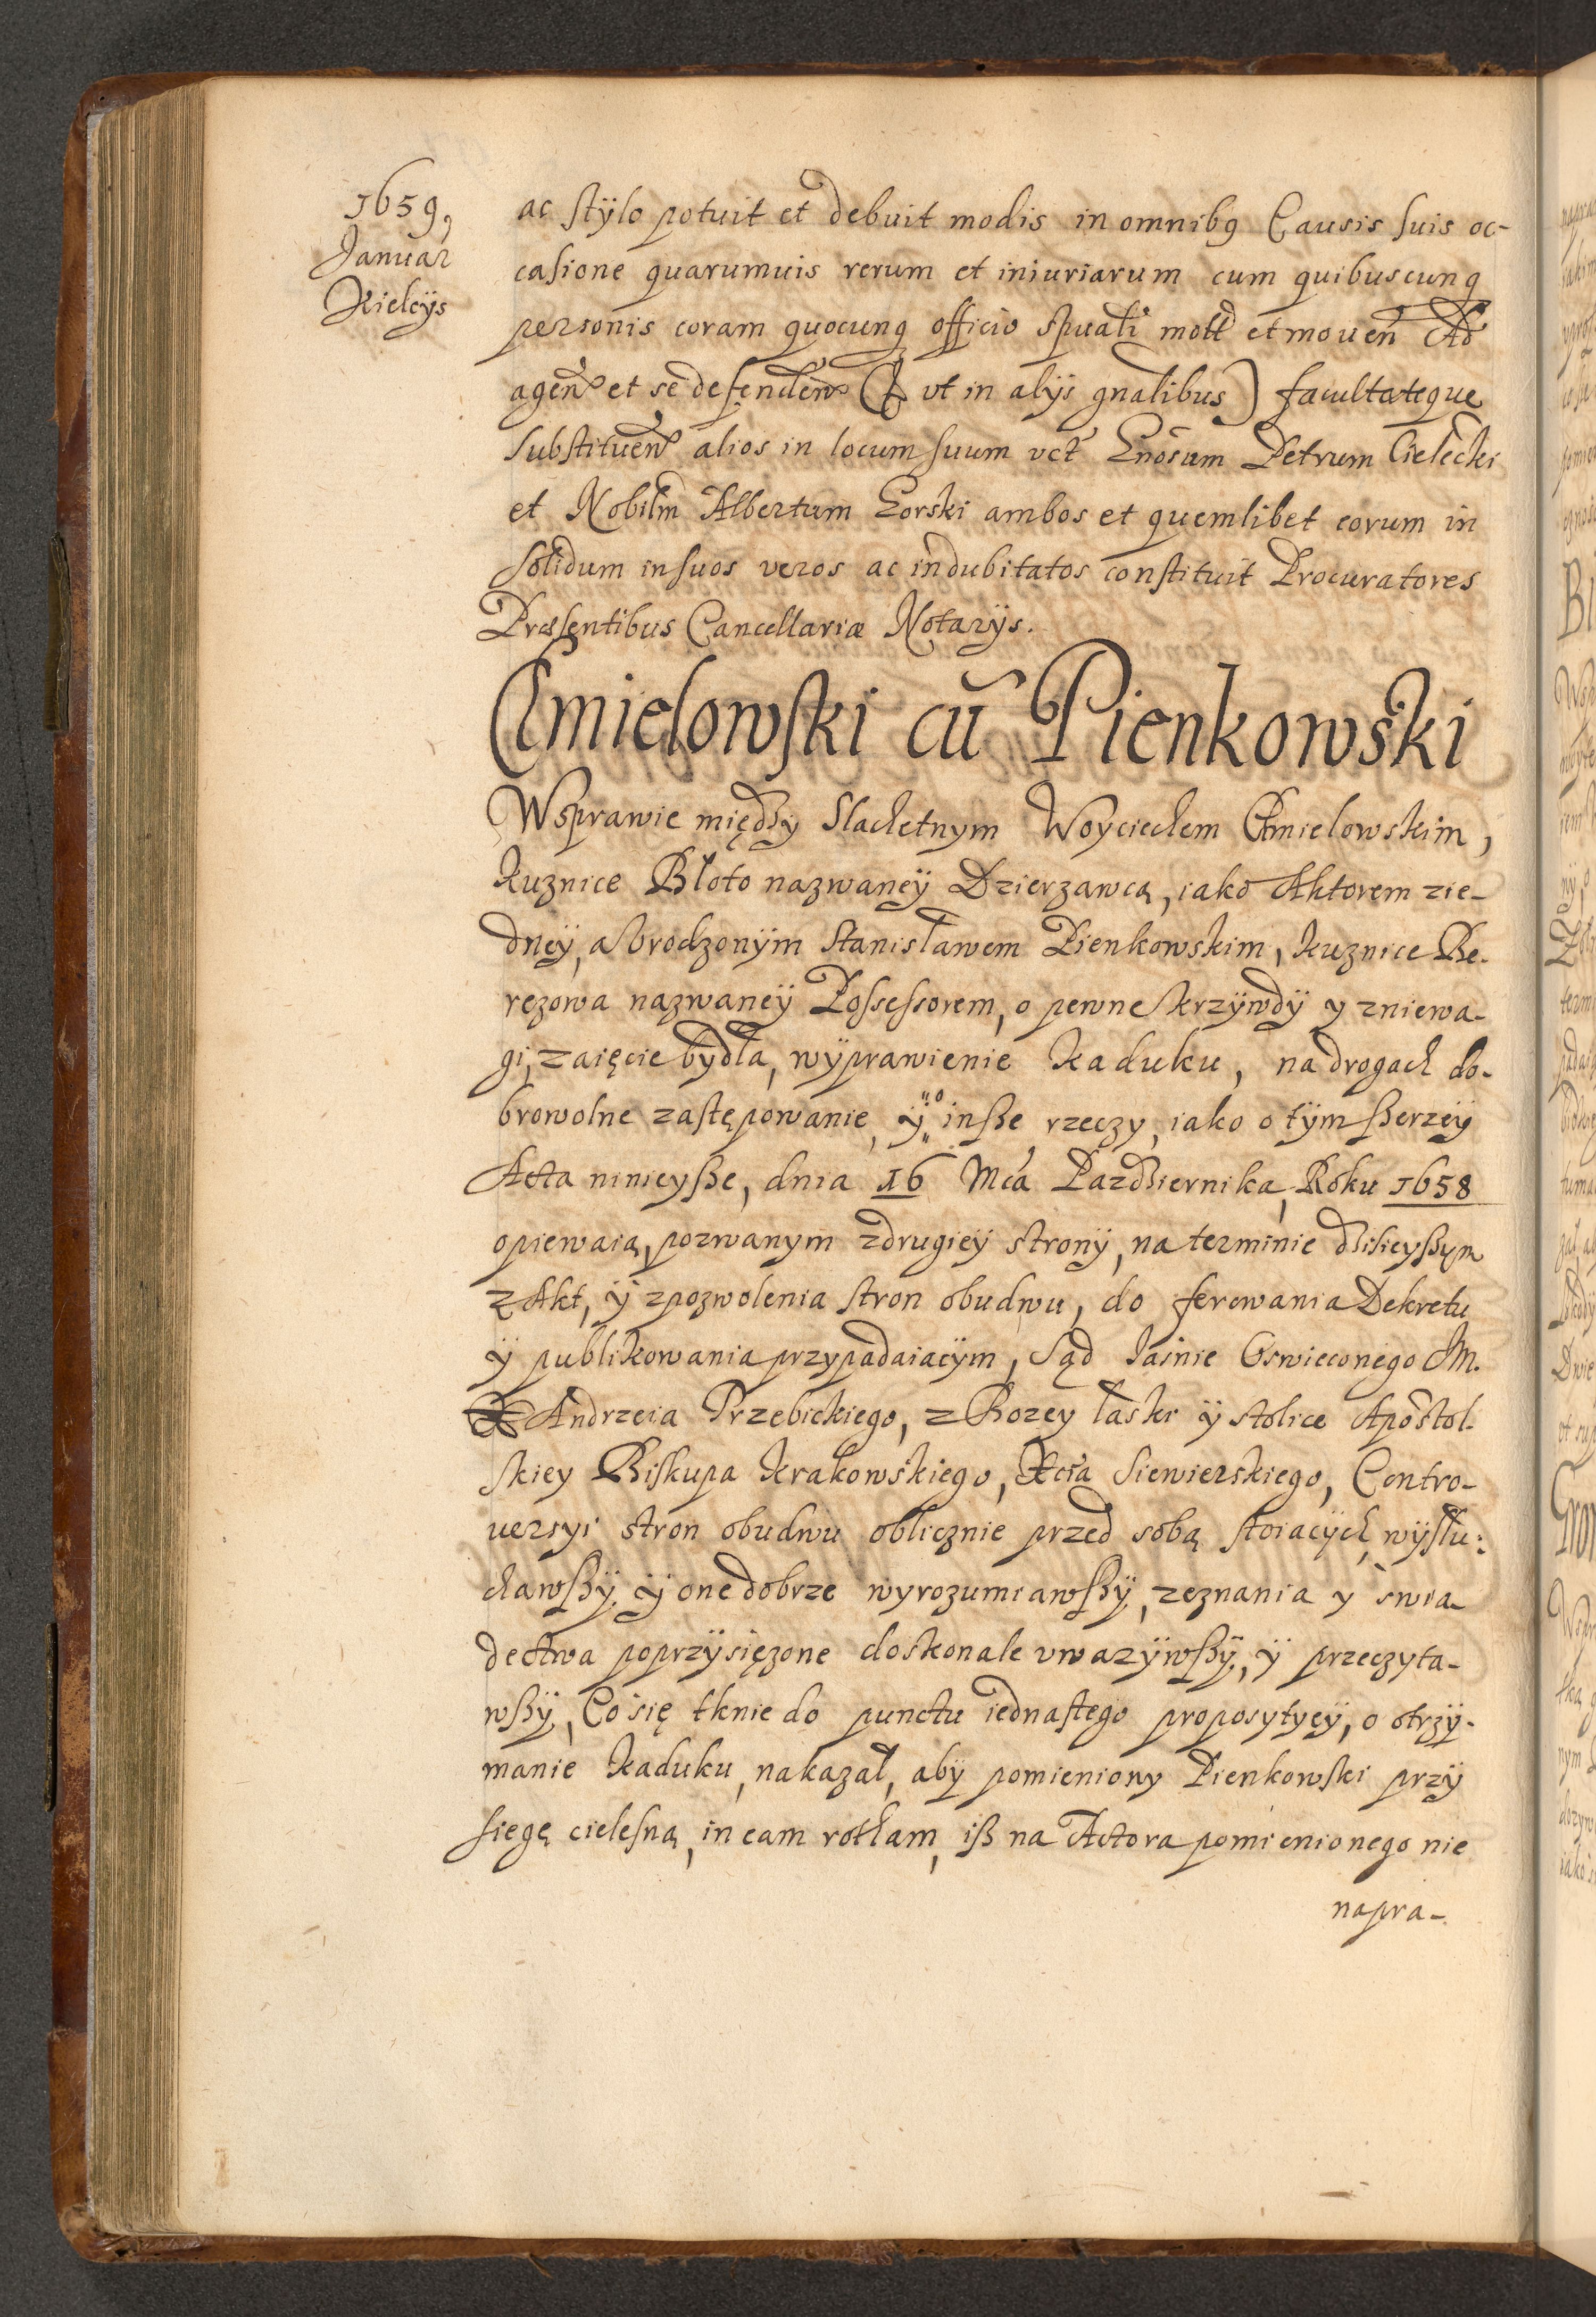 1659,
Januar
Kielcÿs
ac stÿlo potuit et debuit modis in omnibꝫ Causis suis oc-
casione quarumuis rerum et iniuriarum cum quibuscunq
personis coram quocunq officio spuali mott et mouen Ad
agen et se defenden ( ut in alÿs gnalibus) facultateque
substituen alios in locum suum vct Gnosum Petrum Cielecki
et Nobilm Albertum Gorski ambos et quemlibet eorum in
solidum in suos veros ac indubitatos constituit Procuratores
Præsentibus Cancellariæ Notarÿs.
Chmielowski cu Pienkowski
W sprawie między Slachetnym Woyciechem Chmielowskim,
kuznice Błoto nazwaneÿ Dzierzawcą, iako Aktorem z ie-
dneÿ, a Vrodzonÿm Stanisławem Pienkowskim, kuznice Be-
rezowa nazwaneÿ Possessorem, o pewne krzÿwdÿ y zniewa-
gi, zaięcie bÿdła, wÿprawienie kaduku, na drogach do-
browolne zastępowanie, ÿ o insze rzeczy, iako o tÿm szerzeÿ
Acta ninieysze, dnia 16 Mca Pazdziernika, Roku 1658
opiewaią, pozwanym z drugieÿ stronÿ, na terminie dzisieyszym
z Akt, ÿ z pozwolenia stron obudwu, do ferowania Dekretu
ÿ publikowania przypadaiacÿm, Sąd Jaśnie Oswieconego JM.
X Andrzeia Trzebickiego, z Bozey łaski ÿ stolice Apostol-
skiey Biskupa Krakowskiego, Xcia Siewierskiego, Contro-
uersyi stron obudwu oblicznie przed sobą stoiacÿch, wÿsłu-
chawszÿ, ÿ one dobrze wyrozumiawszÿ, zeznania y swia-
dectwa poprzÿsięzone doskonale vwazÿwszÿ, ÿ przeczyta-
wszÿ, Co się tknie do punctu iednastego proposytyeÿ, o otrzÿ-
manie kaduku, nakazał, abÿ pomieniony Pienkowski przÿ
sięgę cielesną, in eam rottam, isz na Actora pomienionego nie
napra-